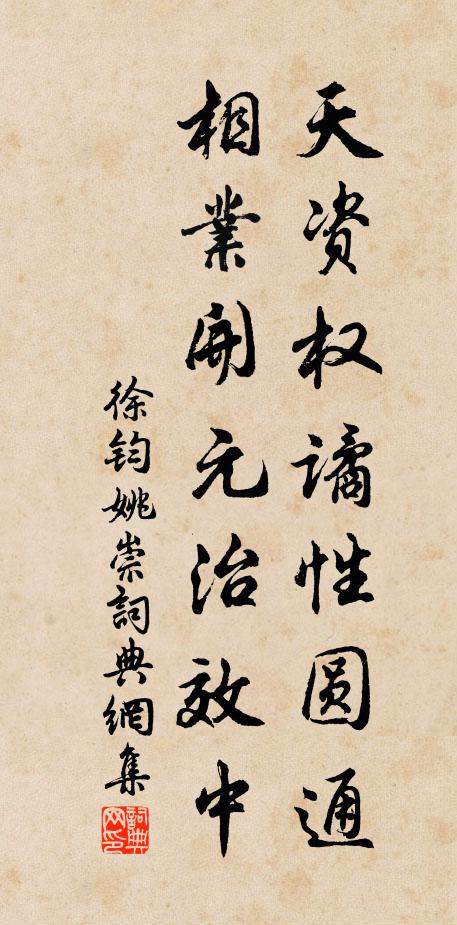 天资权谲性圆通
相業開元治效中
徐鈞姚崇詞典網集
詞典网印